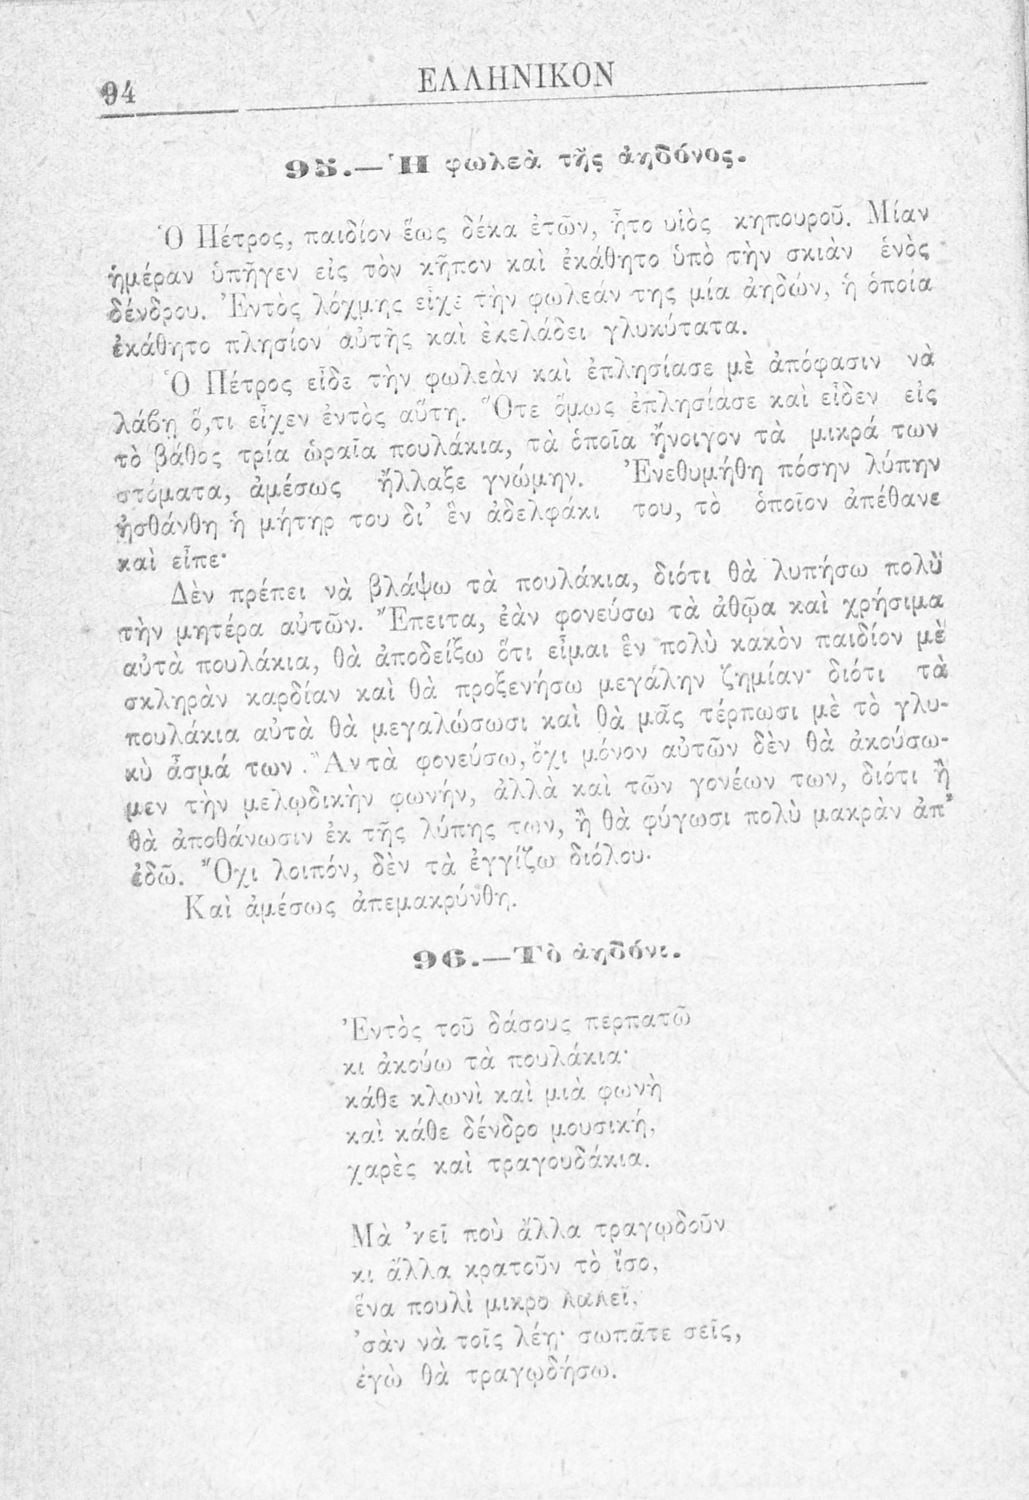 94
ΕΛΛΗΝΙΚΟΝ
95.—Ἡ φωλεὰ τῆς ἀηδόνος.
Ὁ Πέτρος, παιδίον ἕως δέκα ἐτῶν, ἦτο υἱὸς κηπουροῦ. Μίαν
ἡμέραν ὑπῆγεν εἰς τὸν κῆπον καὶ ἐκάθητο ὑπὸ τὴν σκιὰν ἑνὸς
δένδρου. Ἐντὸς λόχμης εἶχε τὴν φωλεάν της μία ἀηδών, ἡ ὁποία
ἐκάθητο πλησίον αὐτῆς καὶ ἐκελάδει γλυκύτατα.
Ὁ Πέτρος εἶδε τὴν φωλεὰν καὶ ἐπλησίασε μὲ ἀπόφασιν νὰ
λάβῃ ὅ,τι εἶχεν ἐντὸς αὕτη. Ὅτε ὅμως ἐπλησίασε καὶ εἶδεν εἰς
τὸ βάθος τρία ὡραῖα πουλάκια, τὰ ὁποῖα ἤνοιγον τὰ μικρά των
στόματα, ἀμέσως ἤλλαξε γνώμην. Ἐνεθυμήθη πόσην λύπην
ᾐσθάνθη ἡ μήτηρ του δι' ἓν ἀδελφάκι του, τὸ ὁποῖον ἀπέθανε
καὶ εἶπε·
Δὲν πρέπει νὰ βλάψω τὰ πουλάκια, διότι θὰ λυπήσω πολὺ
τὴν μητέρα αὐτῶν. Ἔπειτα, ἐὰν φονεύσω τὰ ἀθῷα καὶ χρήσιμα
αὐτὰ πουλάκια, θὰ ἀποδείξω ὅτι εἶμαι ἓν πολὺ κακὸν παιδίον μὲ
σκληρὰν καρδίαν καὶ θὰ προξενήσω μεγάλην ζημίαν· διότι τὰ
πουλάκια αὐτὰ θὰ μεγαλώσωσι καὶ θὰ μᾶς τέρπωσι μὲ τὸ γλυ-
κὺ ᾆσμά των. Ἂν τὰ φονεύσω, ὄχι μόνον αὐτῶν δὲν θὰ ἀκούσω-
μεν τὴν μελῳδικὴν φωνήν, ἀλλὰ καὶ τῶν γονέων των, διότι ἢ
θὰ ἀποθάνωσιν ἐκ τῆς λύπης των, ἢ θὰ φύγωσι πολὺ μακρὰν ἀπ'
ἐδῶ. Ὄχι λοιπόν, δὲν τὰ ἐγγίζω διόλου·
Καὶ ἀμέσως ἀπεμακρύνθη.
96.—Τὸ ἀηδόνι.
Ἐντὸς τοῦ δάσους περπατῶ
κι ἀκούω τὰ πουλάκια·
κάθε κλωνὶ καὶ μιὰ φωνὴ
καὶ κάθε δένδρο μουσική,
χαρὲς καὶ τραγουδάκια.
Μὰ 'κεῖ ποὺ ἄλλα τραγῳδοῦν
κι ἄλλα κρατοῦν τὸ ἴσο,
ἕνα πουλὶ μικρὸ λαλεῖ,
'σὰν νὰ τοῖς λέῃ· σωπᾶτε σεῖς,
ἐγὼ θὰ τραγῳδήσω.